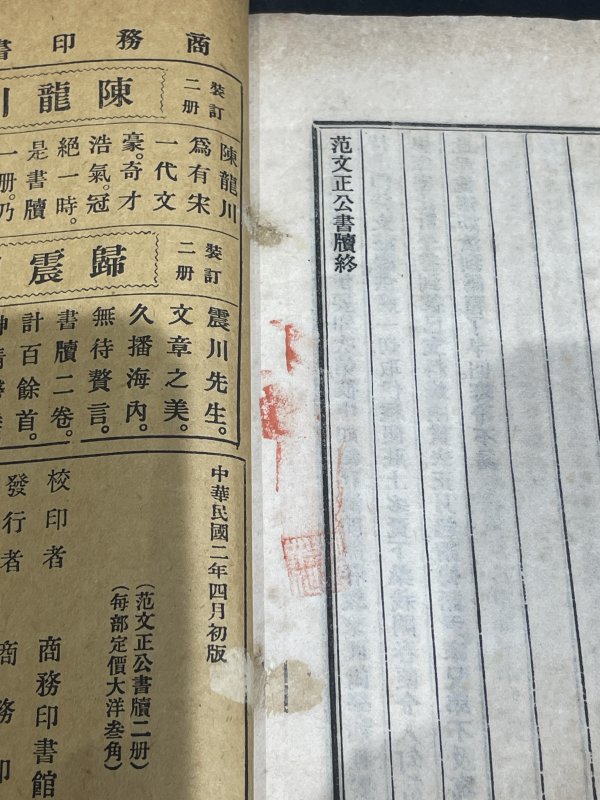 范文正公書牘終
商務印書
裝訂二册
陳龍川
陳龍川
爲有宋
一代文
豪。奇才
浩氣。冠
絕一時。
是書牘
一册。乃
裝訂二册
歸震
震川先生。
文章之美。
久播海內。
無待贅言。
書牘二卷。
計百餘首。
中華民國二年四月初版
(范文正公書牘二册)
(每部定價大洋叁角)
校印者
商務印書館
發行者
商務印